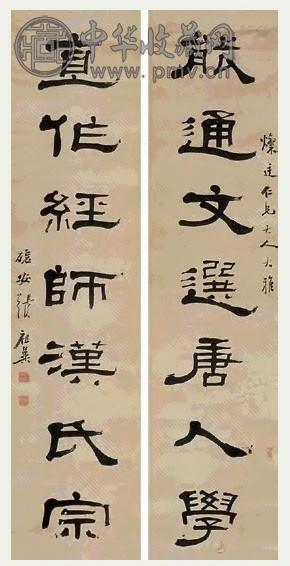 中华收藏网
能通文選唐人學
燦廷仁兄大人大雅
直作經師漢氏宗
張祖翼